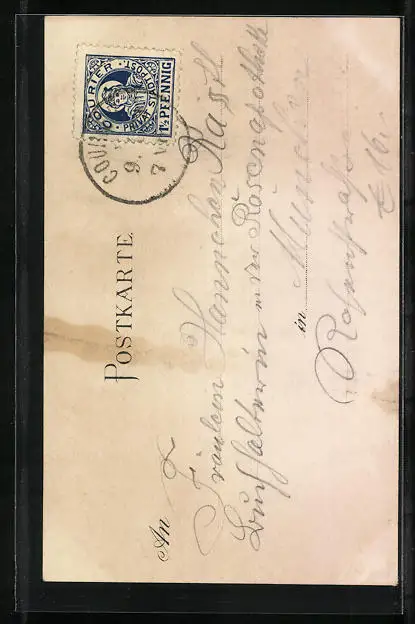 COURIER
PRIVAT STADTPOST
1½ PFENNIG
COURI
9.
7
POSTKARTE
An
Fräulein Hannchen Rast
Buchhalterin in der Rosenapotheke
in München
Rosenstrasse